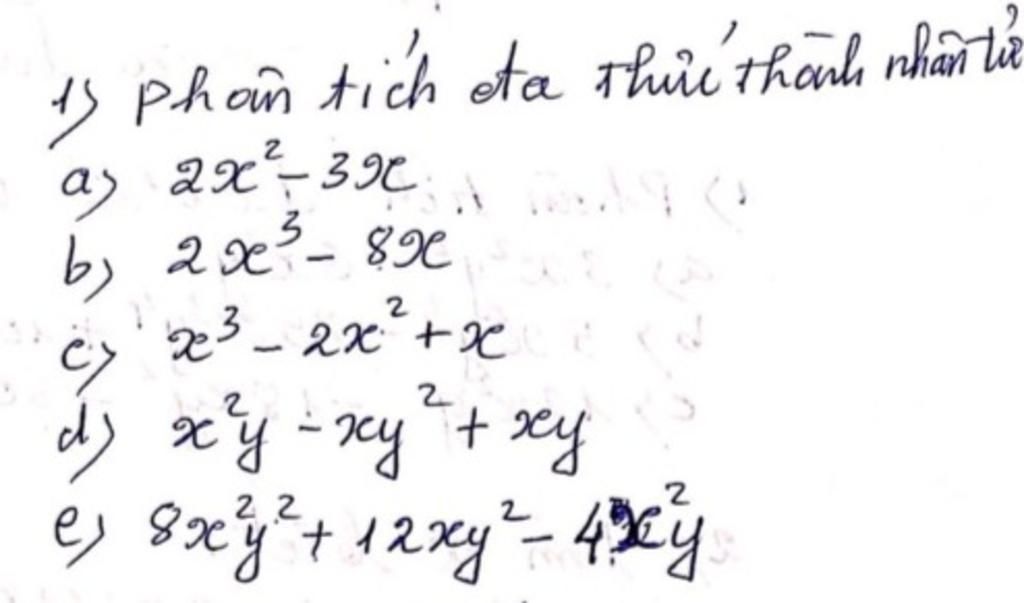 1) Phân tích đa thức thành nhân tử
a) 2x² - 3x
b) 2x³ - 8x
c) x³ - 2x² + x
d) x²y - xy² + xy
e) 8x²y² + 12xy² - 4x²y